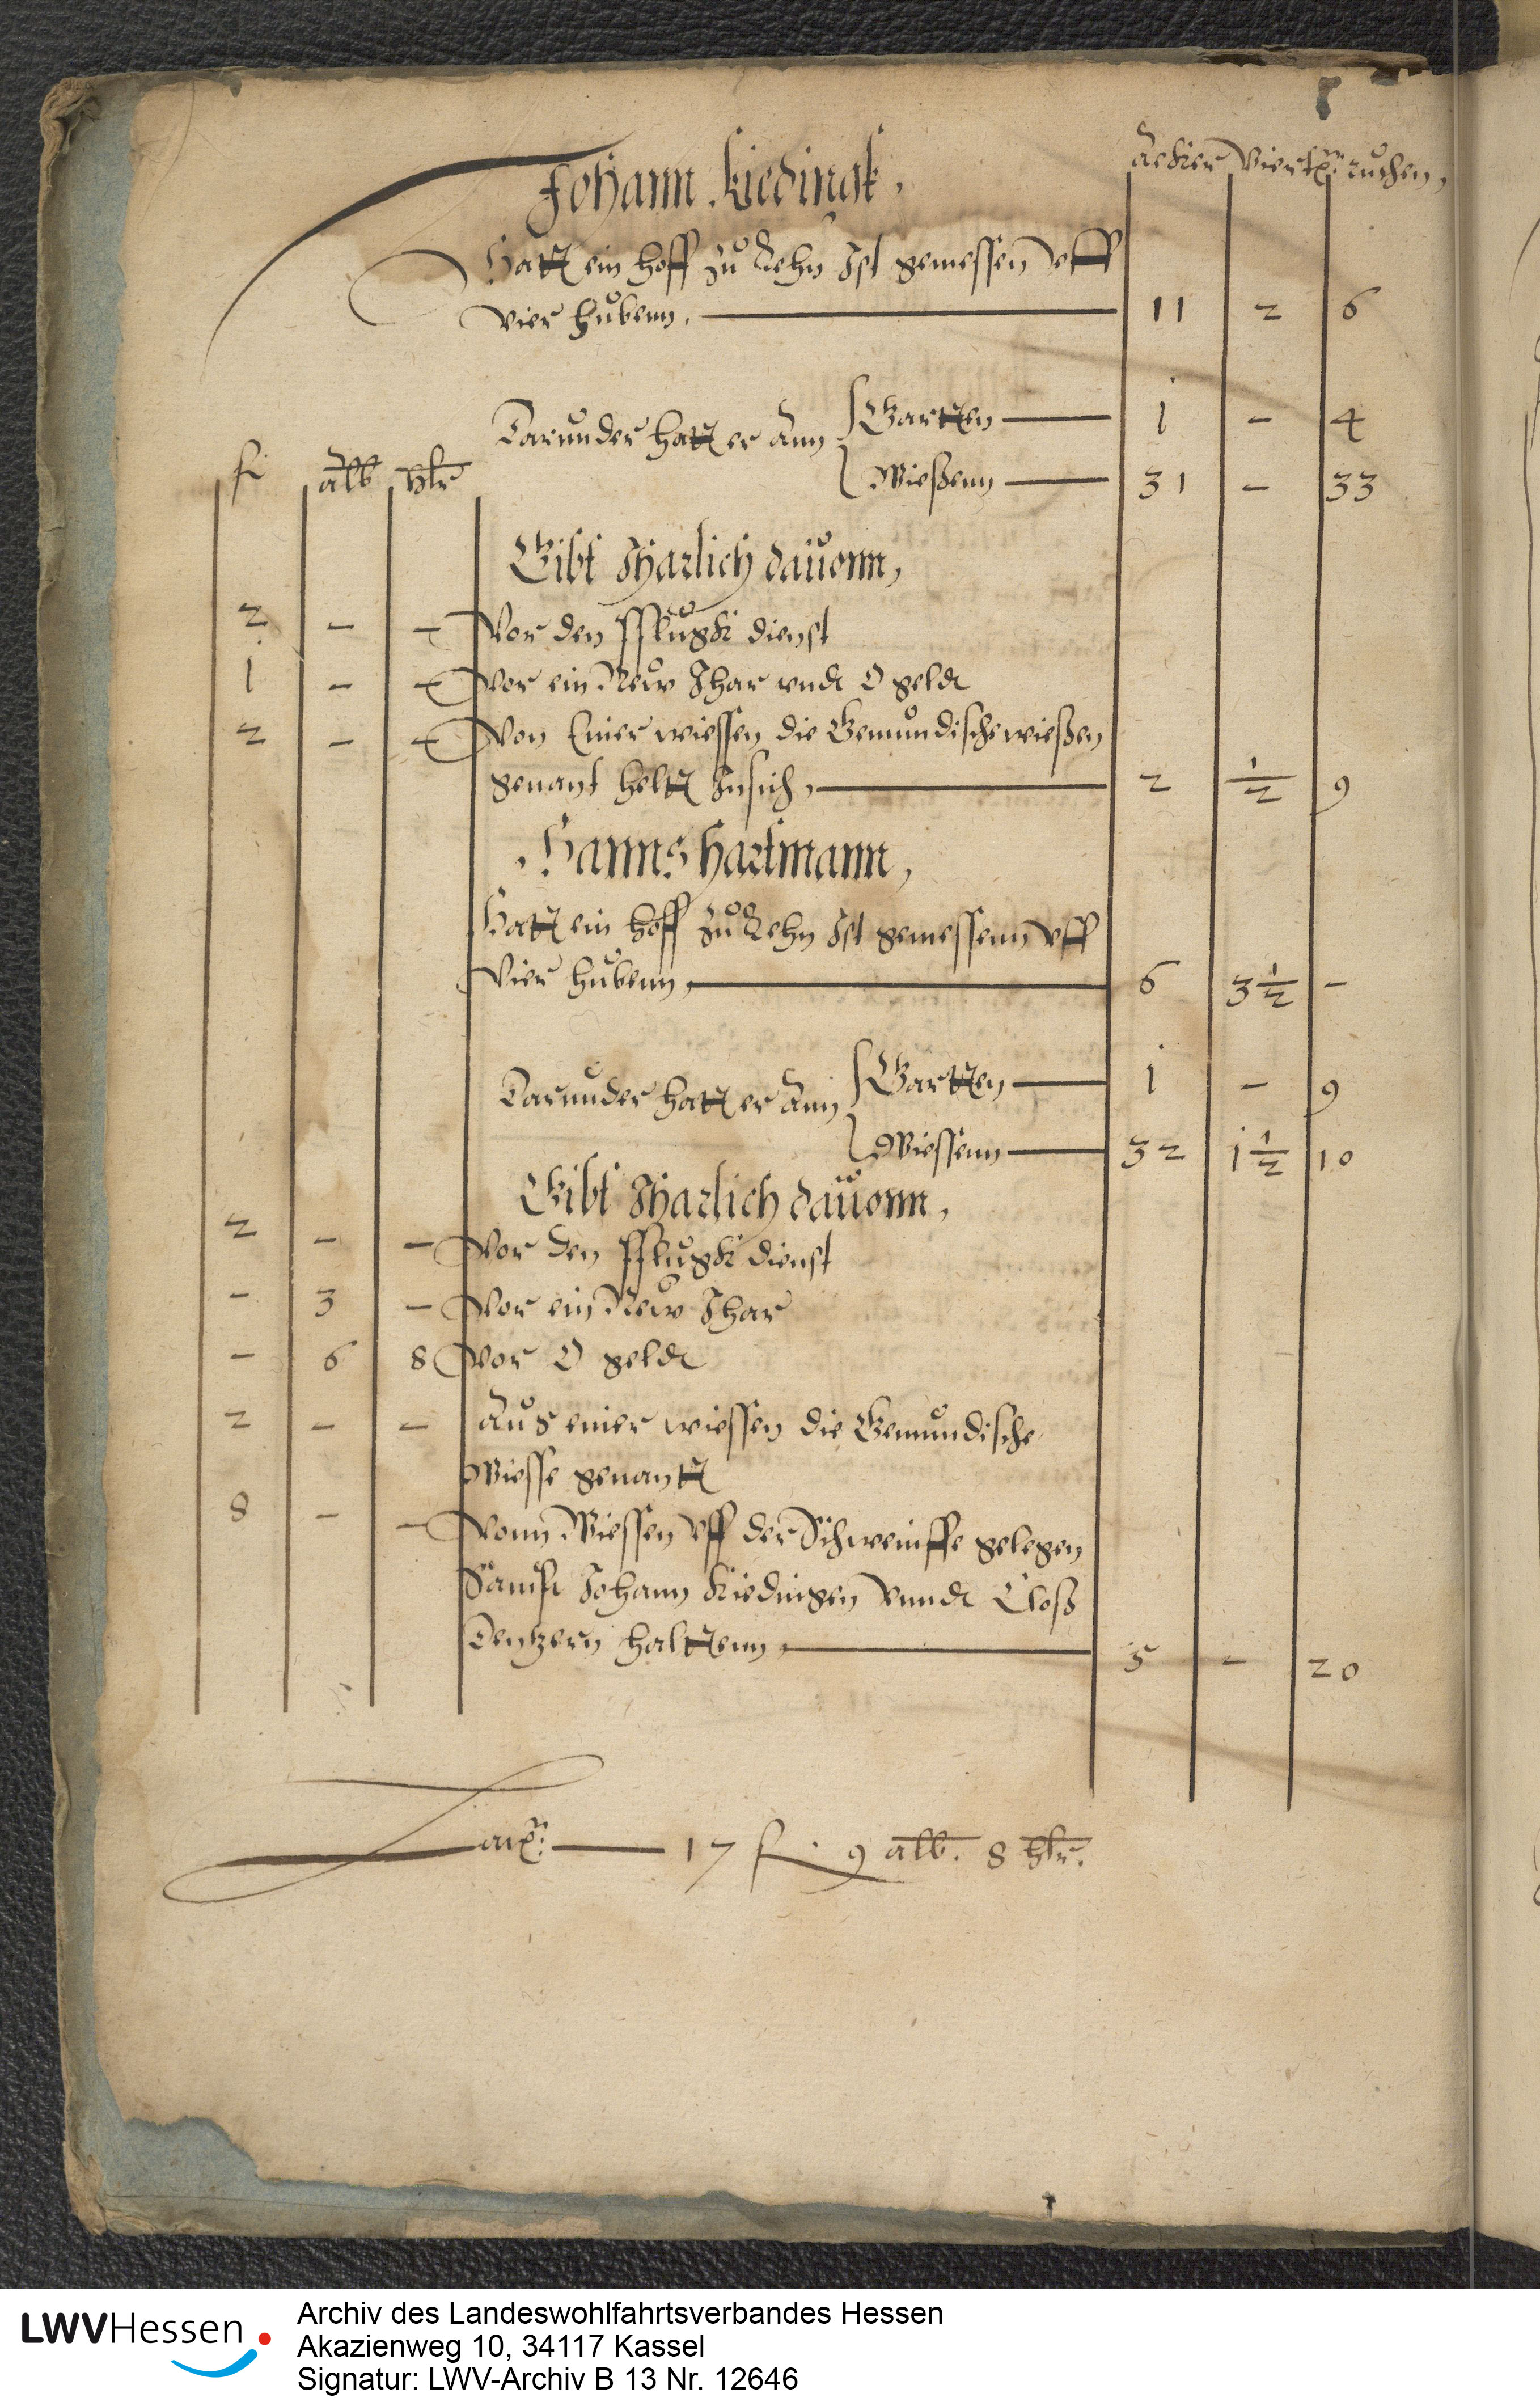 Äcker Viertel ruthen
Johann Kiedingk,
Hatt ein hoff zu Lehn Ist gemessen vff
vier huben, 11 2 6
Garten 1 - 4
Darunder hatt er Ann
Wießenn 31 - 33
fl alb hlr
Gibt Jharlich dauonn,
2 - - Vor den Pflugk dienst
1 - - Vor ein New Jhar vndt O geldt
2 - - Von Einer wiessen die Gemundische wießen
genant helt Insich, 2 1/2 9
Hanns Hartmann,
Hatt ein hoff zu Lehn Ist gemessenn vff
Vier hubenn, 6 3 1/2 -
Garten 1 - 9
Darunder hatt er Ann
Wiessenn 32 1 1/2 10
Gibt Jharlich dauonn,
2 - - Vor den Pflugk dienst
- 3 - Vor ein New Jhar
- 6 8 Vor O geldt
2 - - Aus einer wiessen die Gemundische
Wiesse genantt
8 - - Vonn Wiessen vff der Schweinffe gelegen
Sampt Johann Kiedingen Vnndt Cloß
Dentzern haltenn, 5 - 20
Latus 17 fl. 9 alb. 8 hlr.
LWVHessen
Archiv des Landeswohlfahrtsverbandes Hessen
Akazienweg 10, 34117 Kassel
Signatur: LWV-Archiv B 13 Nr. 12646